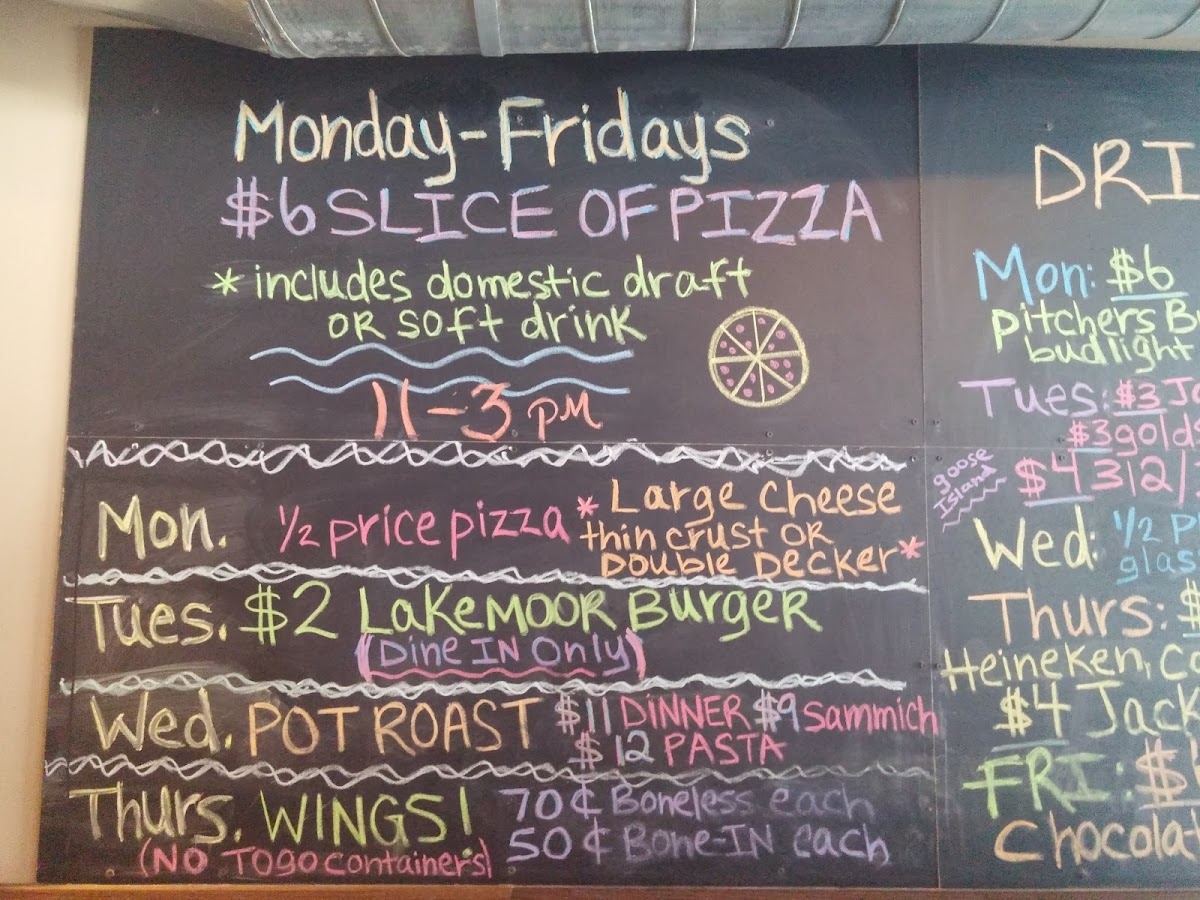 Monday-Fridays
$6 SLICE OF PIZZA
* includes domestic draft
OR soft drink
11-3 PM
Mon. 1/2 price pizza * Large Cheese
thin crust OR
Double Decker *
Tues. $2 Lakemoor Burger
(Dine IN Only)
Wed. POT ROAST $11 DINNER $9 sammich
$12 PASTA
Thurs. WINGS! 70¢ Boneless each
(NO TOGO containers) 50¢ Bone-IN each
DRI
Mon: $6
pitchers B
budlight
Tues: $3 Ja
$3 golds
goose
Island
$4 312/
Wed: 1/2 P
glas
Thurs: $
Heineken, Co
$4 Jack
FRI: $
Chocolat